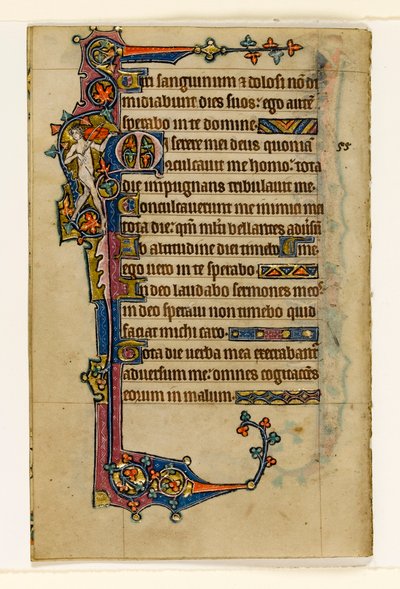 Viri sanguinum & dolosi nō di
midiabunt dies suos: ego autē
sperabo in te domine.
Miserere mei deus quoniā 55
cōculcauit me homo: tota
die impugnans tribulauit me.
Conculcauerunt me inimici mei
tota die: qm̄ ml̄ti bellantes aduersū
Ab altitudine diei timebo: me.
ego uero in te sperabo.
In deo laudabo sermones meos
in deo speraui non timebo quid
faciat michi caro.
Tota die uerba mea execrabant
aduersum me: omnes cogitacōes
eorum in malum.